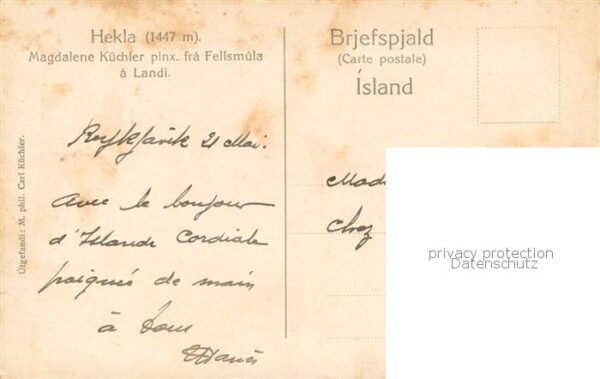 Hekla (1447 m).
Magdalene Küchler pinx. frá Fellsmúla
á Landi.
Brjefspjald
(Carte postale)
Ísland
Útgefandi: M. phil. Carl Küchler.
Reykjavik 21 Mai.
Avec le bonjour
d'Islande Cordiale
poignée de main
à tous
Mada
chez
privacy protection
Datenschutz